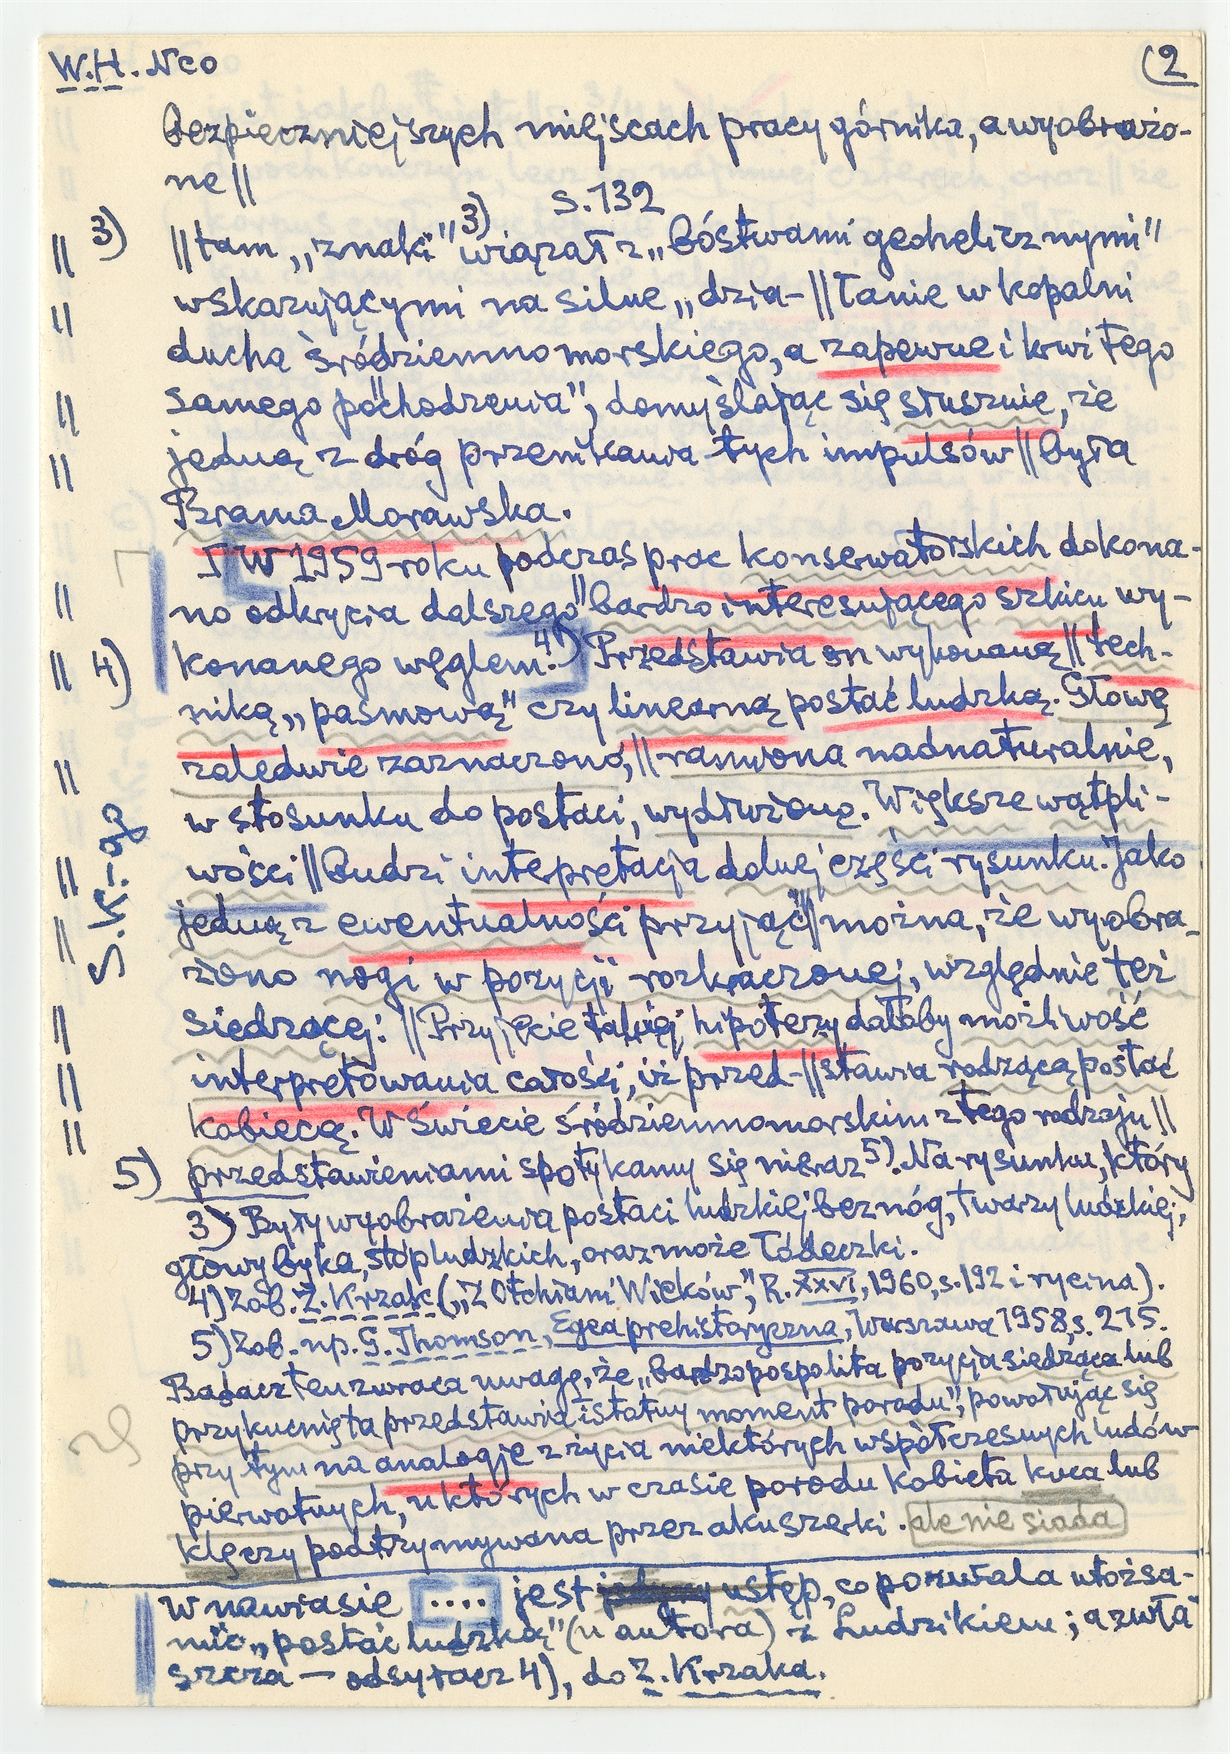 W.H. Neo (2
bezpieczniejszych miejscach pracy górnika, a wyobrażo-
ne ||
s. 132
|| 3) || tam „znaki"3) wiązał z „bóstwami gechelicznymi"
|| wskazującymi na silne „dzia- || łanie w kopalni
ducha śródziemnomorskiego, a zapewne i krwi tego
|| samego pochodzenia", domyślając się słusznie, że
|| jedną z dróg przenikania tych impulsów || była
Brama Morawska.
W 1959 roku podczas prac konserwatorskich dokona-
|| no odkrycia dalszego || bardzo interesującego szkicu wy-
|| 4) konanego węglem.4) Przedstawia on wykonaną || tech-
niką „pasmową" czy linearną postać ludzką. Głowę
|| zaledwie zaznaczono, || ramiona nadnaturalnie,
w stosunku do postaci, wydłużono. Większe wątpli-
|| wości || budzi interpretacja dolnej części rysunku. Jako
|| jedną z ewentualności przyjąć || można, że wyobra-
żono nogi w pozycji rozkraczonej, względnie też
|| siedzącej: || Przyjęcie takiej hipotezy dałoby możliwość
|| interpretowania całości, iż przed- || stawia rodzącą postać
|| kobiecą. W świecie śródziemnomorskim z tego rodzaju ||
S.K.-go
5) przedstawieniami spotykamy się nieraz5). Na rysunku, który
3) Były wyobrażenia postaci ludzkiej bez nóg, twarzy ludzkiej,
głowy byka, stóp ludzkich, oraz może łódeczki.
4) Zob. Z. Krzak („Z Otchłani Wieków", R. XXVI, 1960, s. 192 i rycina).
5) Zob. np. G. Thomson, Egea prehistoryczna, Warszawa 1958, s. 215.
Badacz ten zwraca uwagę, że „bardzo pospolita pozycja siedząca lub
przykucnięta przedstawia istotny moment porodu", powołując się
przy tym na analogje z życia niektórych współczesnych ludów
pierwotnych, u których w czasie porodu kobieta kuca lub
klęczy podtrzymywana przez akuszerki. ale nie siada
W nawiasie [....] jest ustęp, co pozwala utożsa-
mić „postać ludzką" (u autora) z Ludzikiem; a zwła
szcza — odsyłacz 4), do Z. Krzaka.